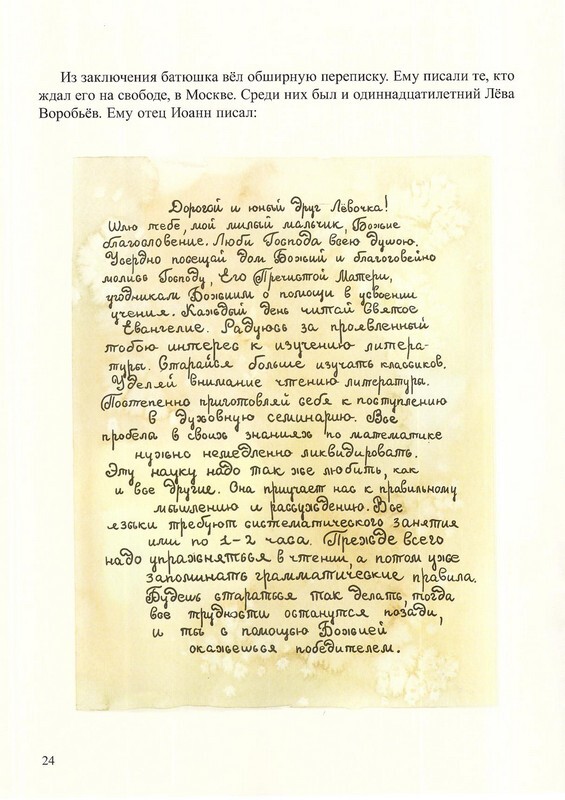 Из заключения батюшка вёл обширную переписку. Ему писали те, кто
ждал его на свободе, в Москве. Среди них был и одиннадцатилетний Лёва
Воробьёв. Ему отец Иоанн писал:
Дорогой и юный друг Лёвочка!
Шлю тебе, мой милый мальчик, Божие
благословение. Люби Господа всею душою.
Усердно посещай дом Божий и благоговейно
молись Господу, Его Пречистой Матери,
угодникам Божиим о помощи в усвоении
учения. Каждый день читай Святое
Евангелие. Радуюсь за проявленный
тобою интерес к изучению литера-
туры. Старайся больше изучать классиков.
Уделяй внимание чтению литературы.
Постепенно приготовляй себя к поступлению
в духовную семинарию. Все
пробела в своих знаниях по математике
нужно немедленно ликвидировать.
Эту науку надо так же любить, как
и все другие. Она приучает нас к правильному
мышлению и рассуждению. Все
языки требуют систематического занятия
или по 1-2 часа. Прежде всего
надо упражняться в чтении, а потом уже
запоминать грамматические правила.
Будешь стараться так делать, тогда
все трудности останутся позади,
и ты с помощью Божией
окажешься победителем.
24